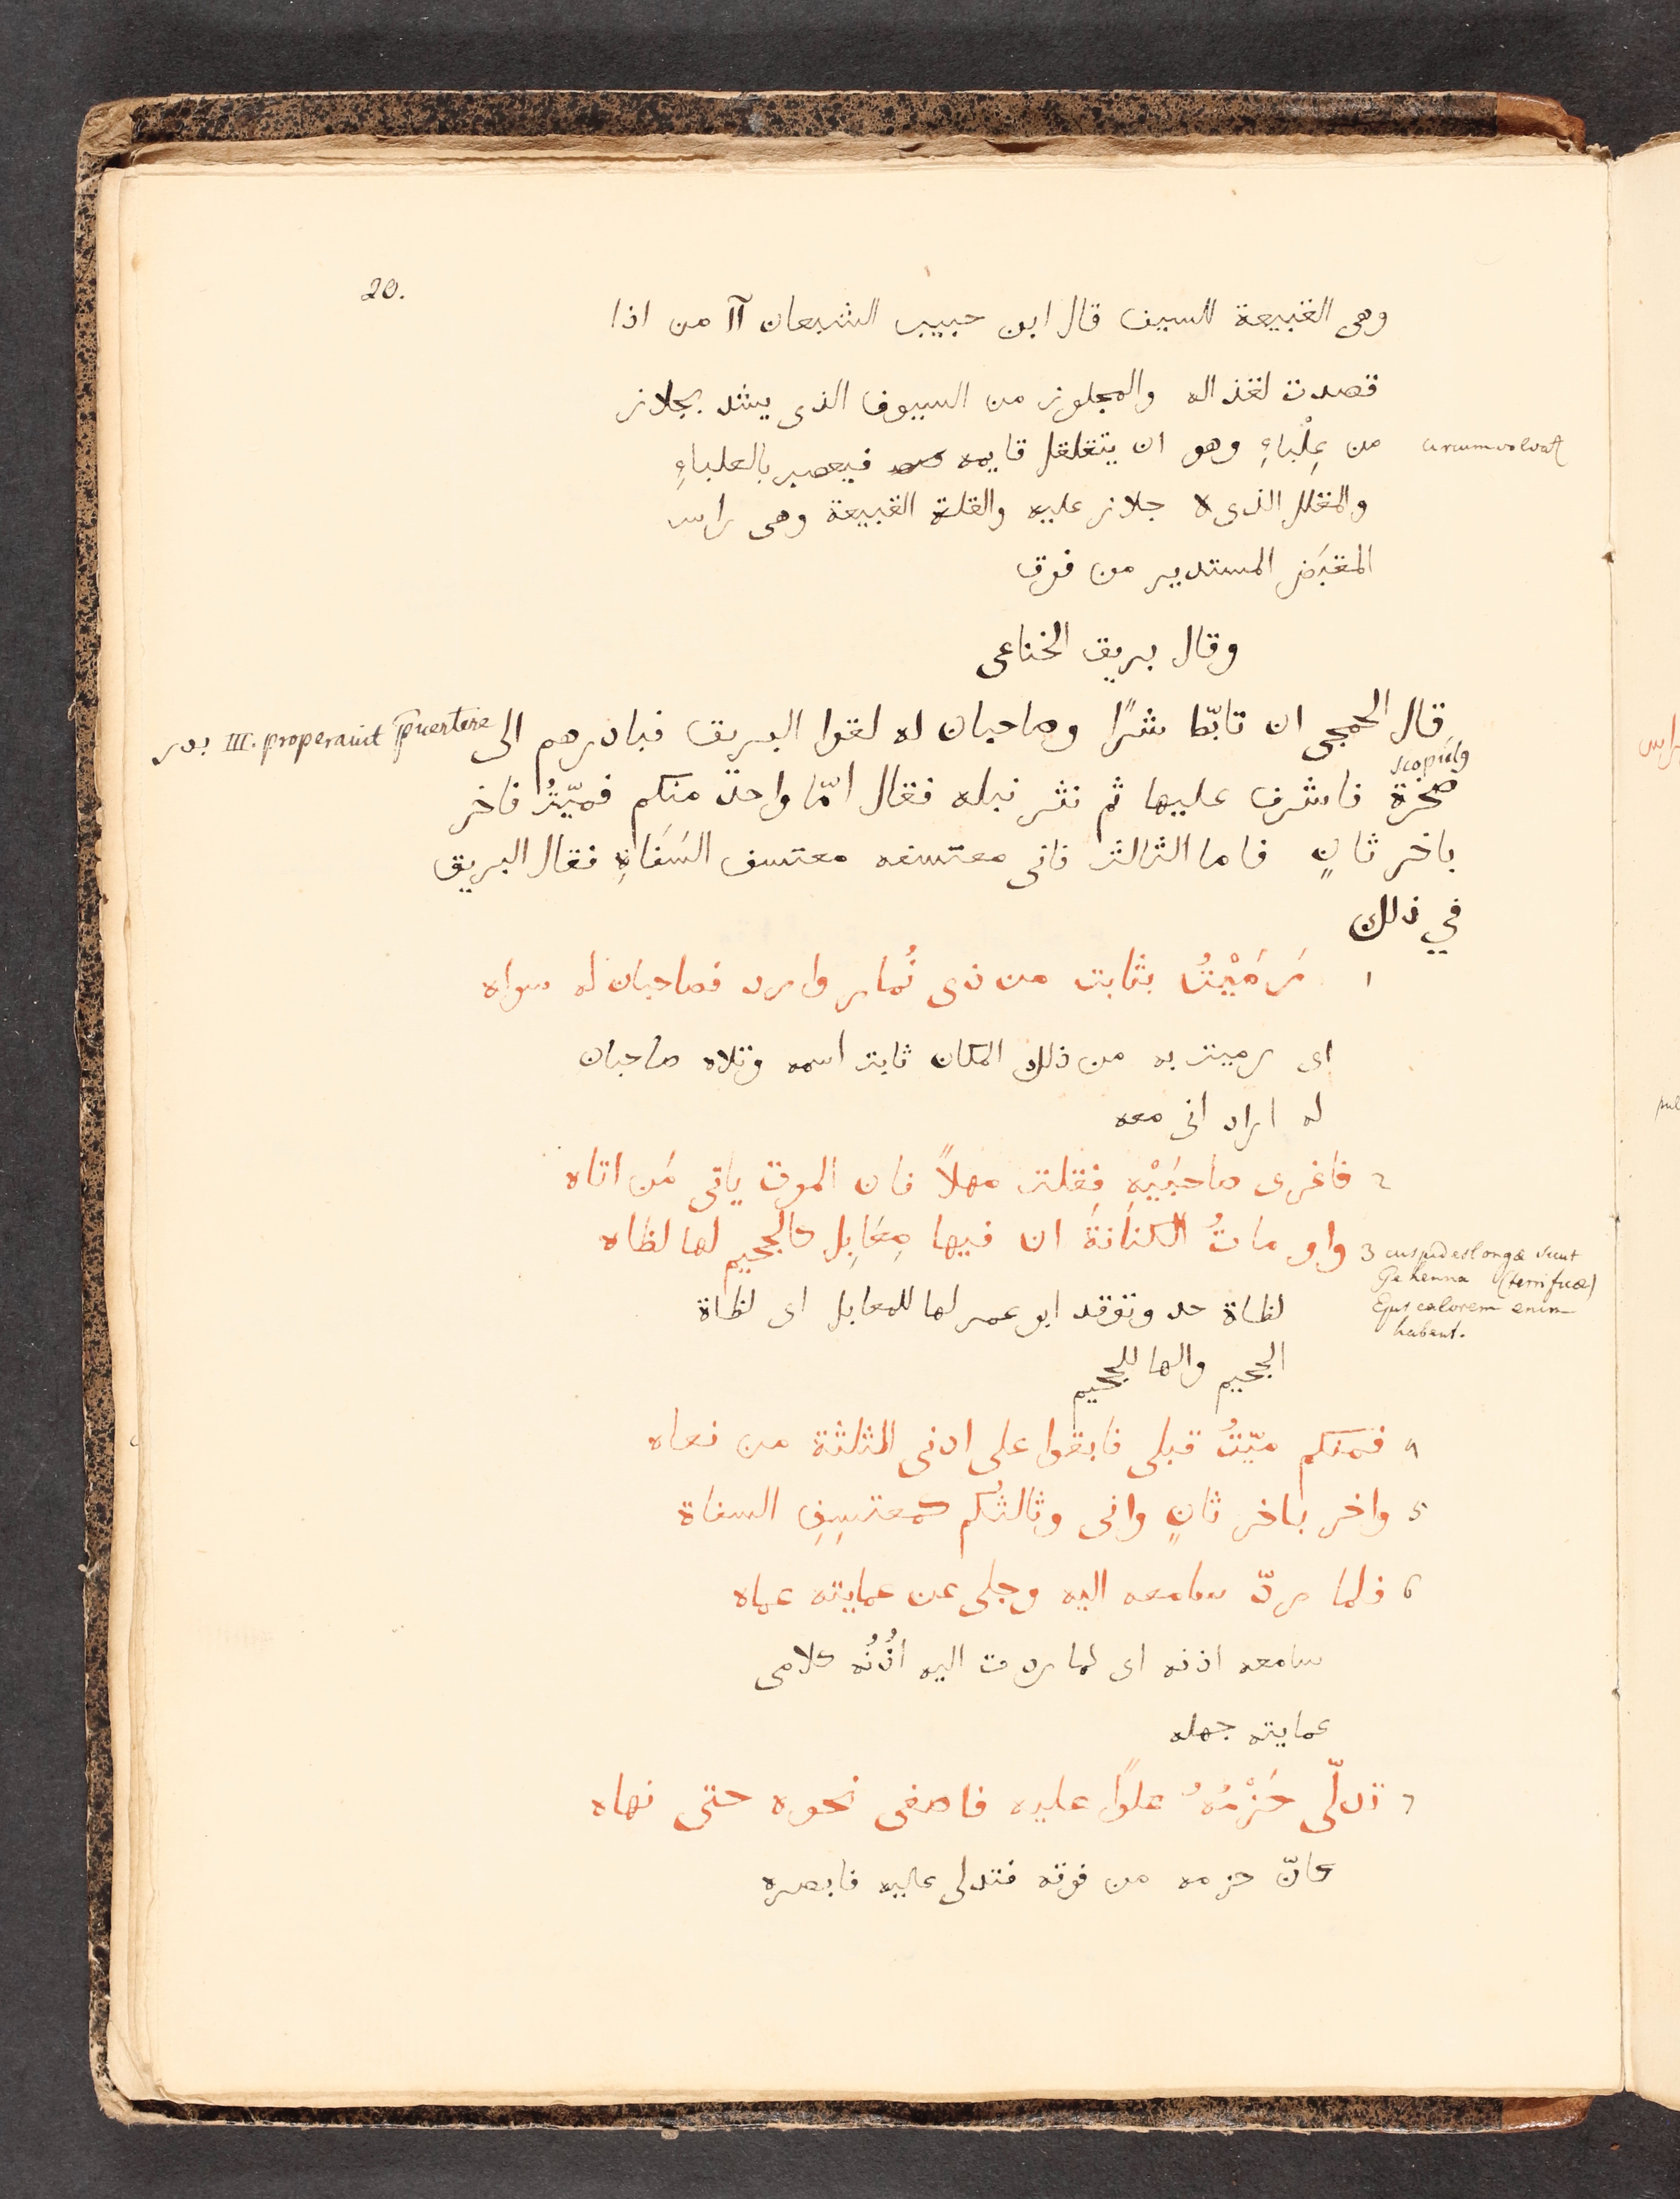 20.
وهى القبيعة للسيف قال ابن حبيب الشبعان آآ من اذا
قصدت لقذاله والمجلوز من السيوف الذى يشد بجلاز
من عِلْباءِ وهو ان يتقلقل قايمه فيعصب بالعلباءِ
circumvolvat
والمقلل الذى لا جلاز عليه والقلة القبيعة وهى راس
المقبَض المستدير من فوق
وقال بريق الخناعى
قال الجمحى ان تابّط شرًا وصاحبان له لقوا البريق فبادرهم الى
بدر III. properavit pvertere
scopulo
صخرة فاشرف عليها ثم نثر نبله فقال امّا واحد منكم فميّتُ فاخر
باخر ثانٍ فاما الثالث فانى معتسفه معتسف السَفاةِ فقال البريق
في ذلك
١ رَمَيْتُ بثابت من ذى نُمار وارد فصاحبان له سواه
اى رميت به من ذلك المكان ثابت اسمه وتلاه صاحبان
له اراد انى معه
٢ فاغرى صاحبَيْهِ فقلت مهلاً فان الموت ياتى مَن اتاه
3 واو ماتُ الكنانةَ ان فيها مِعَابِل كالجحيم لها لظاه
cuspides longæ sicut
Gehenna (terrificæ)
Ejus calorem enim
habent.
لظاة حد وتوقد ابو عمر لها للمعابل اى لظاة
الجحيم والها للجحيم
٩ فمنكم ميّتُ قبلى فابقوا على ادنى الثلثة من نعاه
5 واخر باخر ثانٍ وانى وثالثُكم كمعتسِفِ السفاة
6 فلما ردّ سامعه اليه وجلى عن عمايته عماه
سامعه اذنه اى لما ردت اليه اُذُنُه كلامى
عمايته جهله
7 تدلّى حَزْمُهُ علوًا عليه فاصغى نحوه حتى نهاه
كانّ حزمه من فوقه فتدلى عليه فابصره